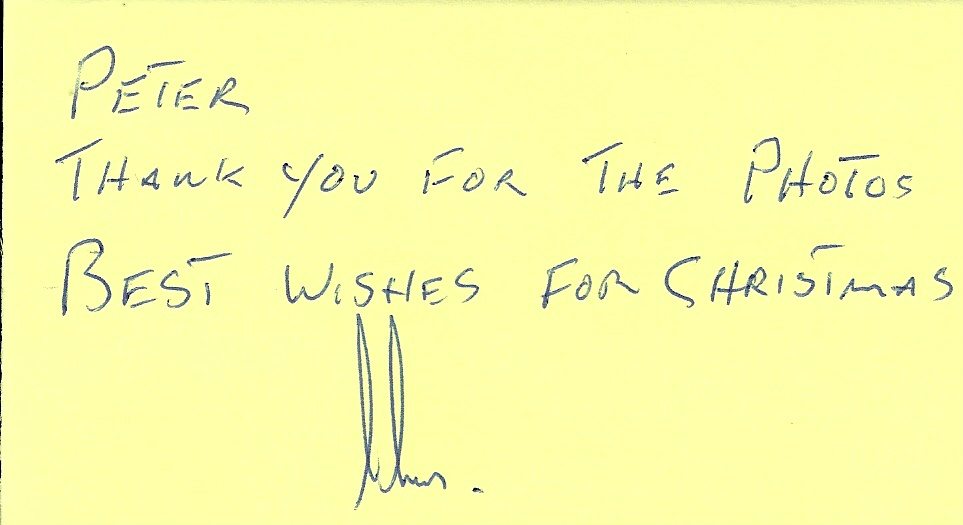 PETER
THANK YOU FOR THE PHOTOS
BEST WISHES FOR CHRISTMAS